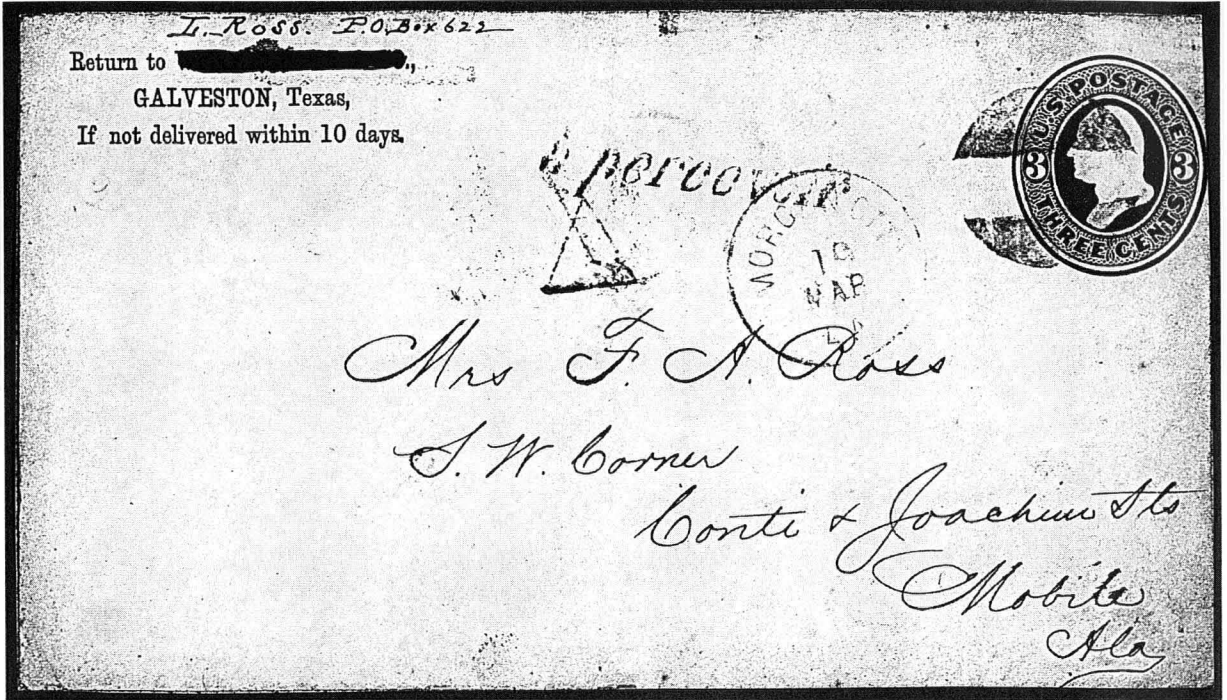 L. Ross. P.O. Box 622
Return to
GALVESTON, Texas,
If not delivered within 10 days.
U.S. POSTAGE
3 3
THREE CENTS
percevoir
10
MAR
Mrs F. A. Ross
S. W. Corner
Conti & Joachim Sts
Mobile
Ala